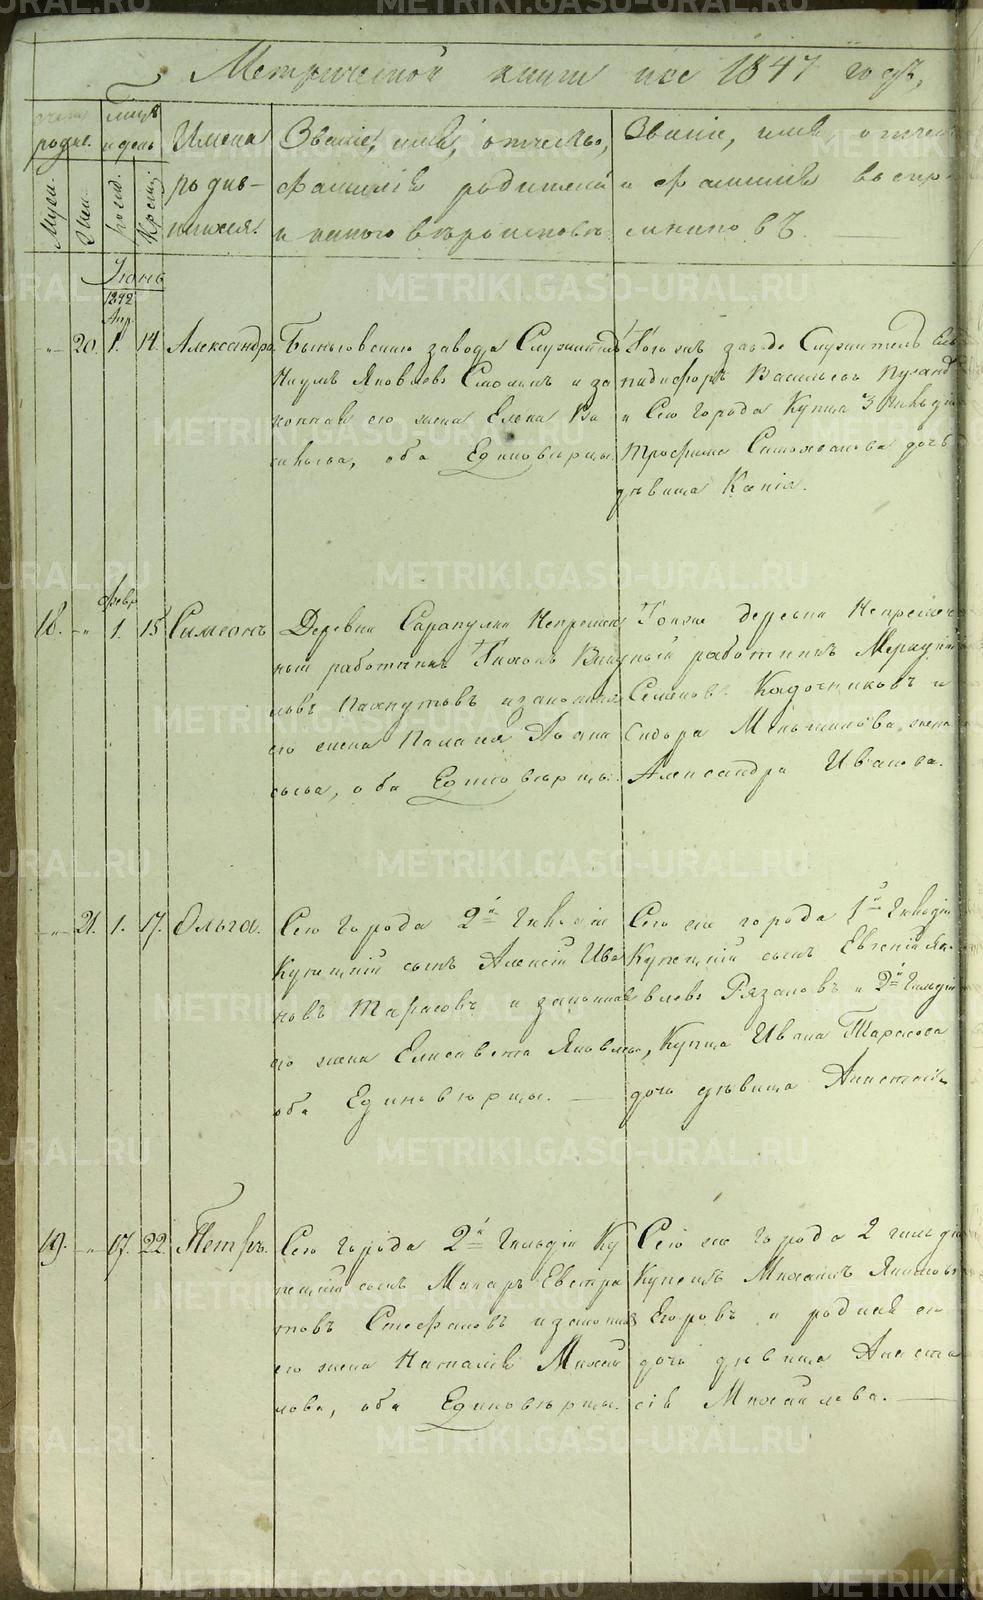 Метрической книги на 1847 годъ,
Счетъ родив.
Муж.
Жен.
Мѣсяцъ и день
рожд.
Крещ.
Имена
родив-
шихся.
Званіе, имя, отчество,
фамилія родителей
и какого вѣроисповѣ.
Званіе, имя, отчест
и фамилія воспрі-
емниковъ.
Іюнь
1842
Апр.
20. 1. 14. Александра
Быньговскаго завода Служитель
Наумъ Яковлевъ Смолинъ и за
конная его жена Елена Ва
сильева, оба Единовѣрцы.
Того жъ завода Служитель
Никифоръ Васильевъ
и Сего города Купца 3 Гильдіи
Трофима дочь
дѣвица Ксенія.
Февр.
18. „ 1. 15. Симеонъ
Деревни Сарапулки Непремѣн
ный работникъ Тихонъ
Пахнутовъ и законная
его жена Палагея Афана
сьева, оба Единовѣрцы.
Тойже деревни Непремѣн
ный работникъ Меркурій
Семеновъ Кадочниковъ и
Сидора Меньшикова, жена
Александра Иванова.
„ 21. 1. 17. Ольга.
Сего города 2й Гильдіи
Купеческій сынъ Алексей Ива
новъ Тарасовъ и законная
его жена Елисавета Яковлева,
оба Единовѣрцы.
Сего же города 1й Гильдіи
Купеческій сынъ Евгеній Як
влевъ Рязановъ и 2й Гильдіи
Купца Ивана Тарасова
дочь дѣвица
19. „ 17. 22. Петръ.
Сего города 2й Гильдіи Ку
печескій сынъ Макаръ Евстра
товъ Стефановъ и законная
его жена Наталія Михай
лова, оба Единовѣрцы.
Сего же города 2 гильдіи
Купецъ Михаилъ
Егоровъ и родная его
дочь дѣвица Анаста
сія Михайлова.
METRIKI.GASO-URAL.RU